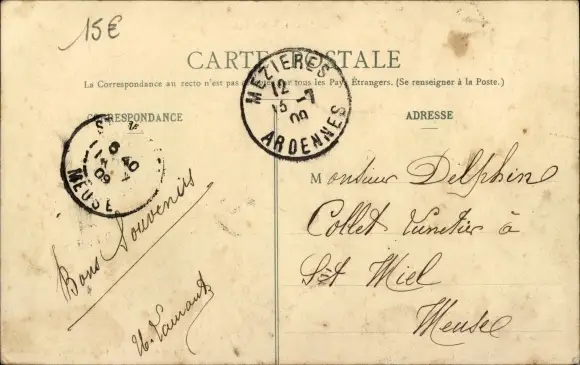 15€
CARTE POSTALE
La Correspondance au recto n'est pas par tous les Pays Étrangers. (Se renseigner à la Poste.)
CORRESPONDANCE
ADRESSE
MEZIERES
12
15 -7
09
ARDENNES
6 40
14 -7
09
MEUSE
Bons Souvenirs
Monsieur Delphin
Collet à
St Miel
Meuse